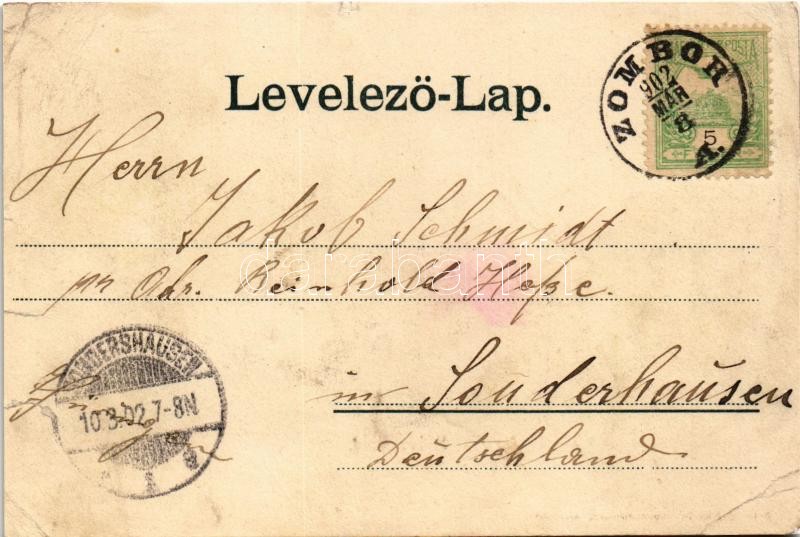 Levelezö-Lap.
ZOMBOR
902
MÁR
8
A.
POSTA
5
Herrn
Jakob Schmidt
pr Adr. Reinhold Hoße.
in Sonderhausen
Deutschland
SONDERSHAUSEN
10.3.02.7-8N
darabanth